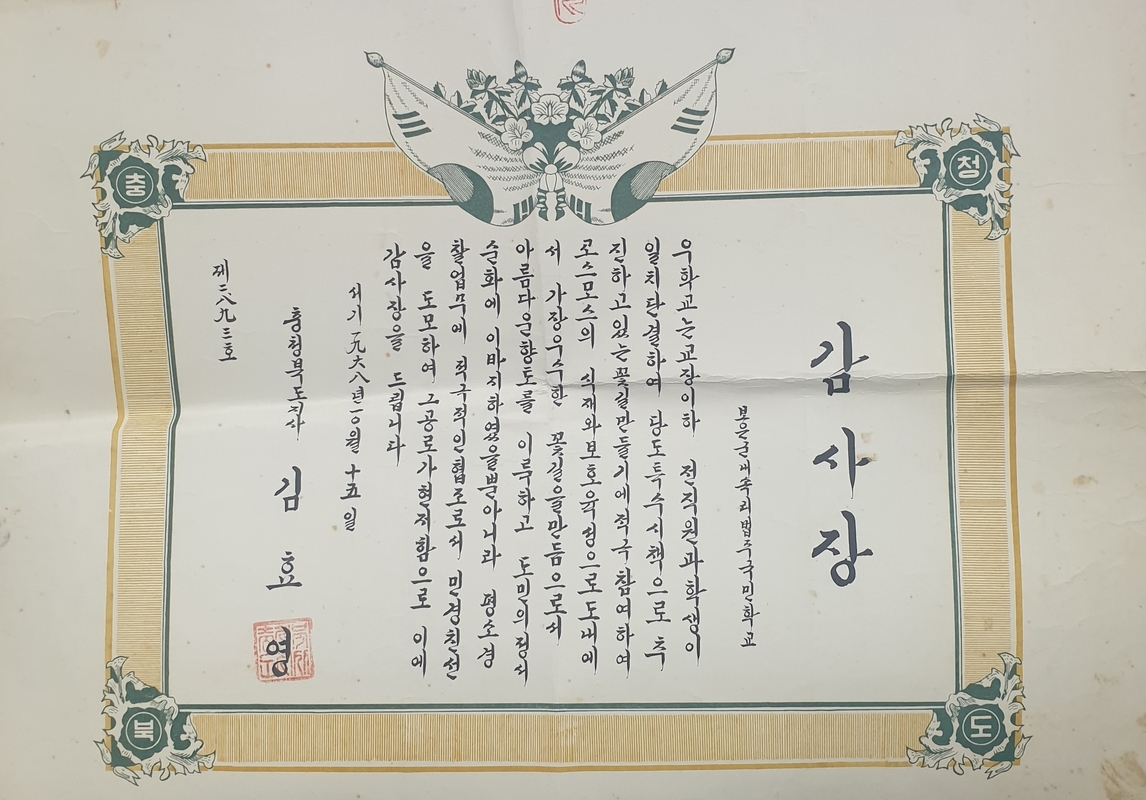 감사장
보은군 내속리 법주국민학교
우학교는 교장이하 전직원과 학생이
일치단결하여 당도 특수시책으로 추
진하고 있는 꽃길 만들기에 적극 참여하여
코스모스의 식재와 보호육성으로 도내에
서 가장 우수한 꽃길을 만듬으로서
아름다운 향토를 이룩하고 도민의 정서
순화에 이바지 하였을뿐아니라 평소 경
찰업무에 적극적인 협조로서 민경친선
을 도모하여 그 공로가 현저함으로 이에
감사장을 드립니다
서기 一九六八년 一0월 十五일
충청북도지사 김효영
제二八九三호
충
청
북
도